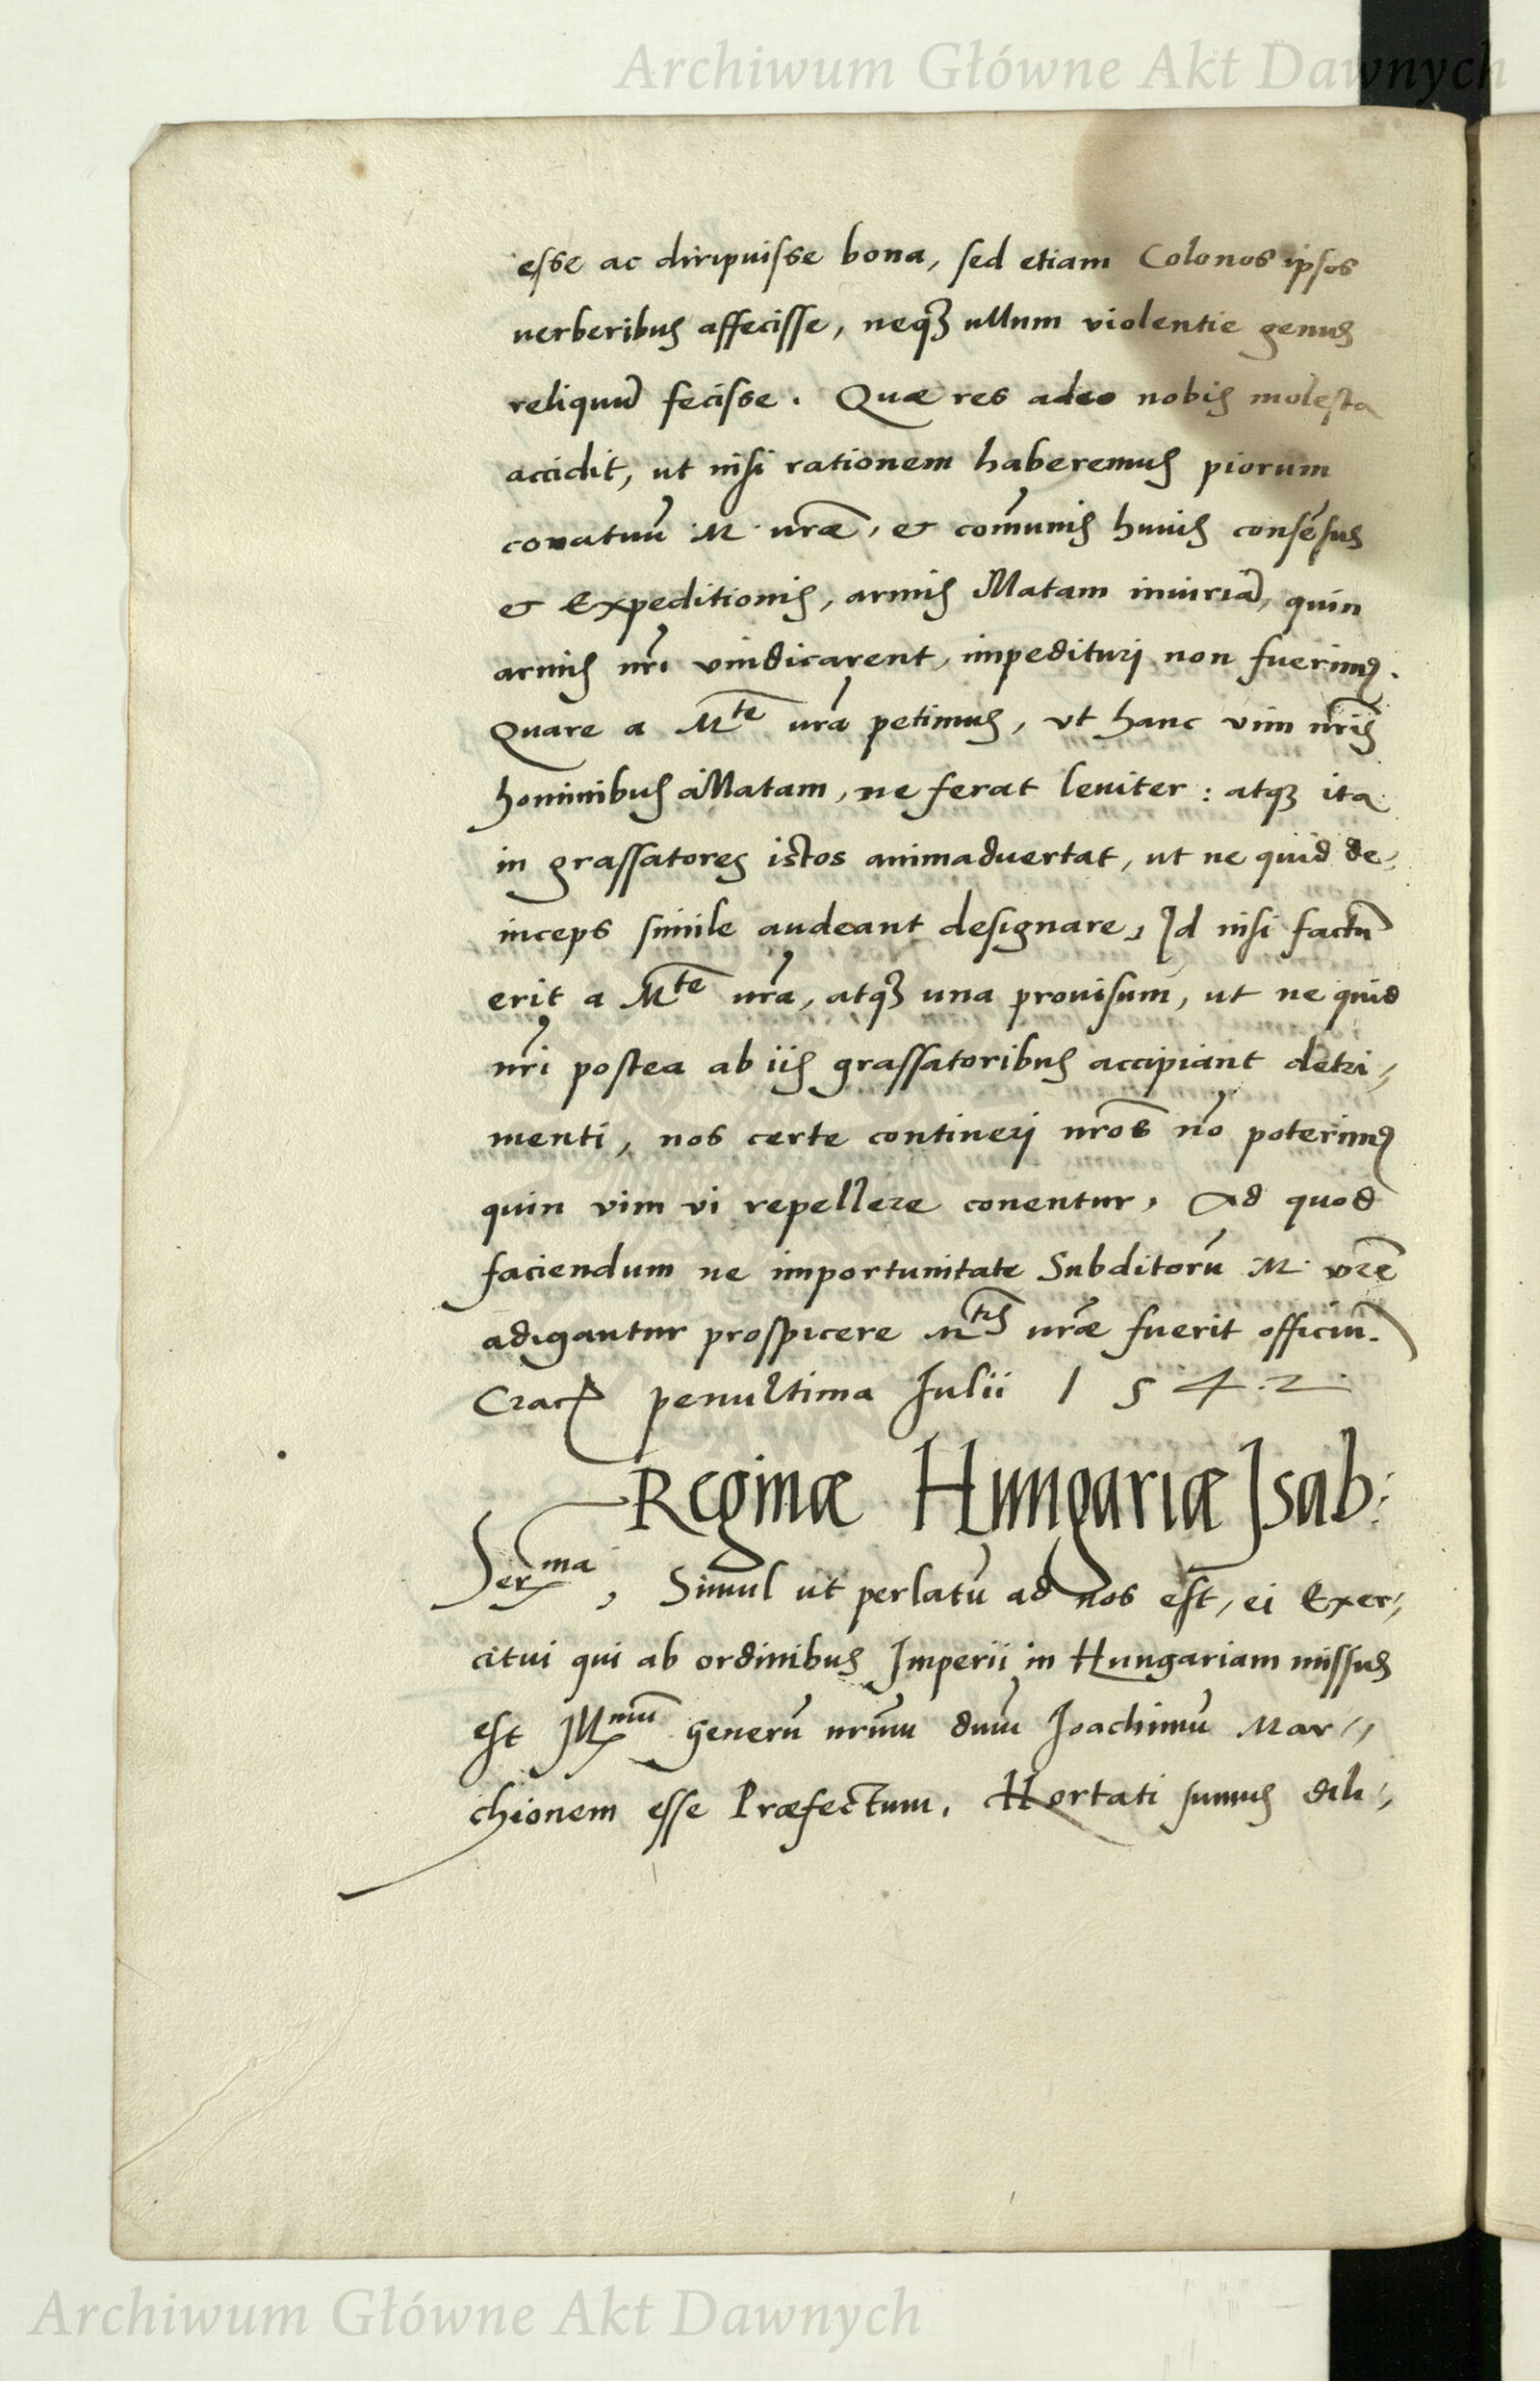 Archiwum Główne Akt Dawnych
esse ac diripuisse bona, sed etiam Colonos ipsos
uerberibus affecisse, neq3 ullum violentie genus
reliquū fecisse. Quæ res adeo nobis molesta
accidit, ut nisi rationem haberemus piorum
conatuū M. uræ, & com̄unis huius consēsus
& Expeditionis, armis illatam iniuriā, quin
armis nr̄i vindicarent, impedituri non fuerimus.
Quare a Mte ura petimus, vt hanc vim nr̄is
hominibus allatam, ne ferat leuiter: atq3 ita
in grassatores istos animaduertat, ut ne quid de,
inceps simile audeant designare, Id nisi factū
erit a Mte ura, atq3 una prouisum, ut ne quid
nr̄i postea ab iis grassatoribus accipiant detri,
menti, nos certe contineri nr̄os nō poterimus
quin vim vi repellere conentur, Ad quod
faciendum ne importunitate Subditorū M. vr̄e
adigantur prospicere Mtis uræ fuerit officiū.
Crac penultima Julii 1542
Reginæ Hungariæ Isab:
Serma, Simul ut perlatū ad nos est, ei Exer,
citui qui ab ordinibus Imperii in Hungariam missus
est Illmum generū nrūm dnūm Ioachimū Mar,
chionem esse Præfectum, Hortati sumus dili,
Archiwum Główne Akt Dawnych